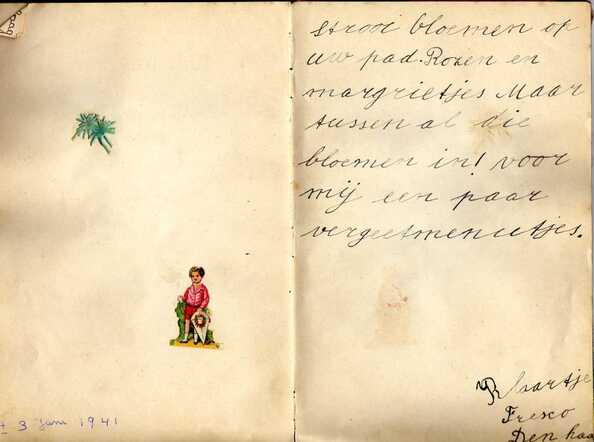 3 juni 1941
strooi bloemen op
uw pad. Rozen en
margrietjes Maar
tussen al die
bloemen in! voor
mij een paar
vergeetmenietjes.
Fresco
Den haa